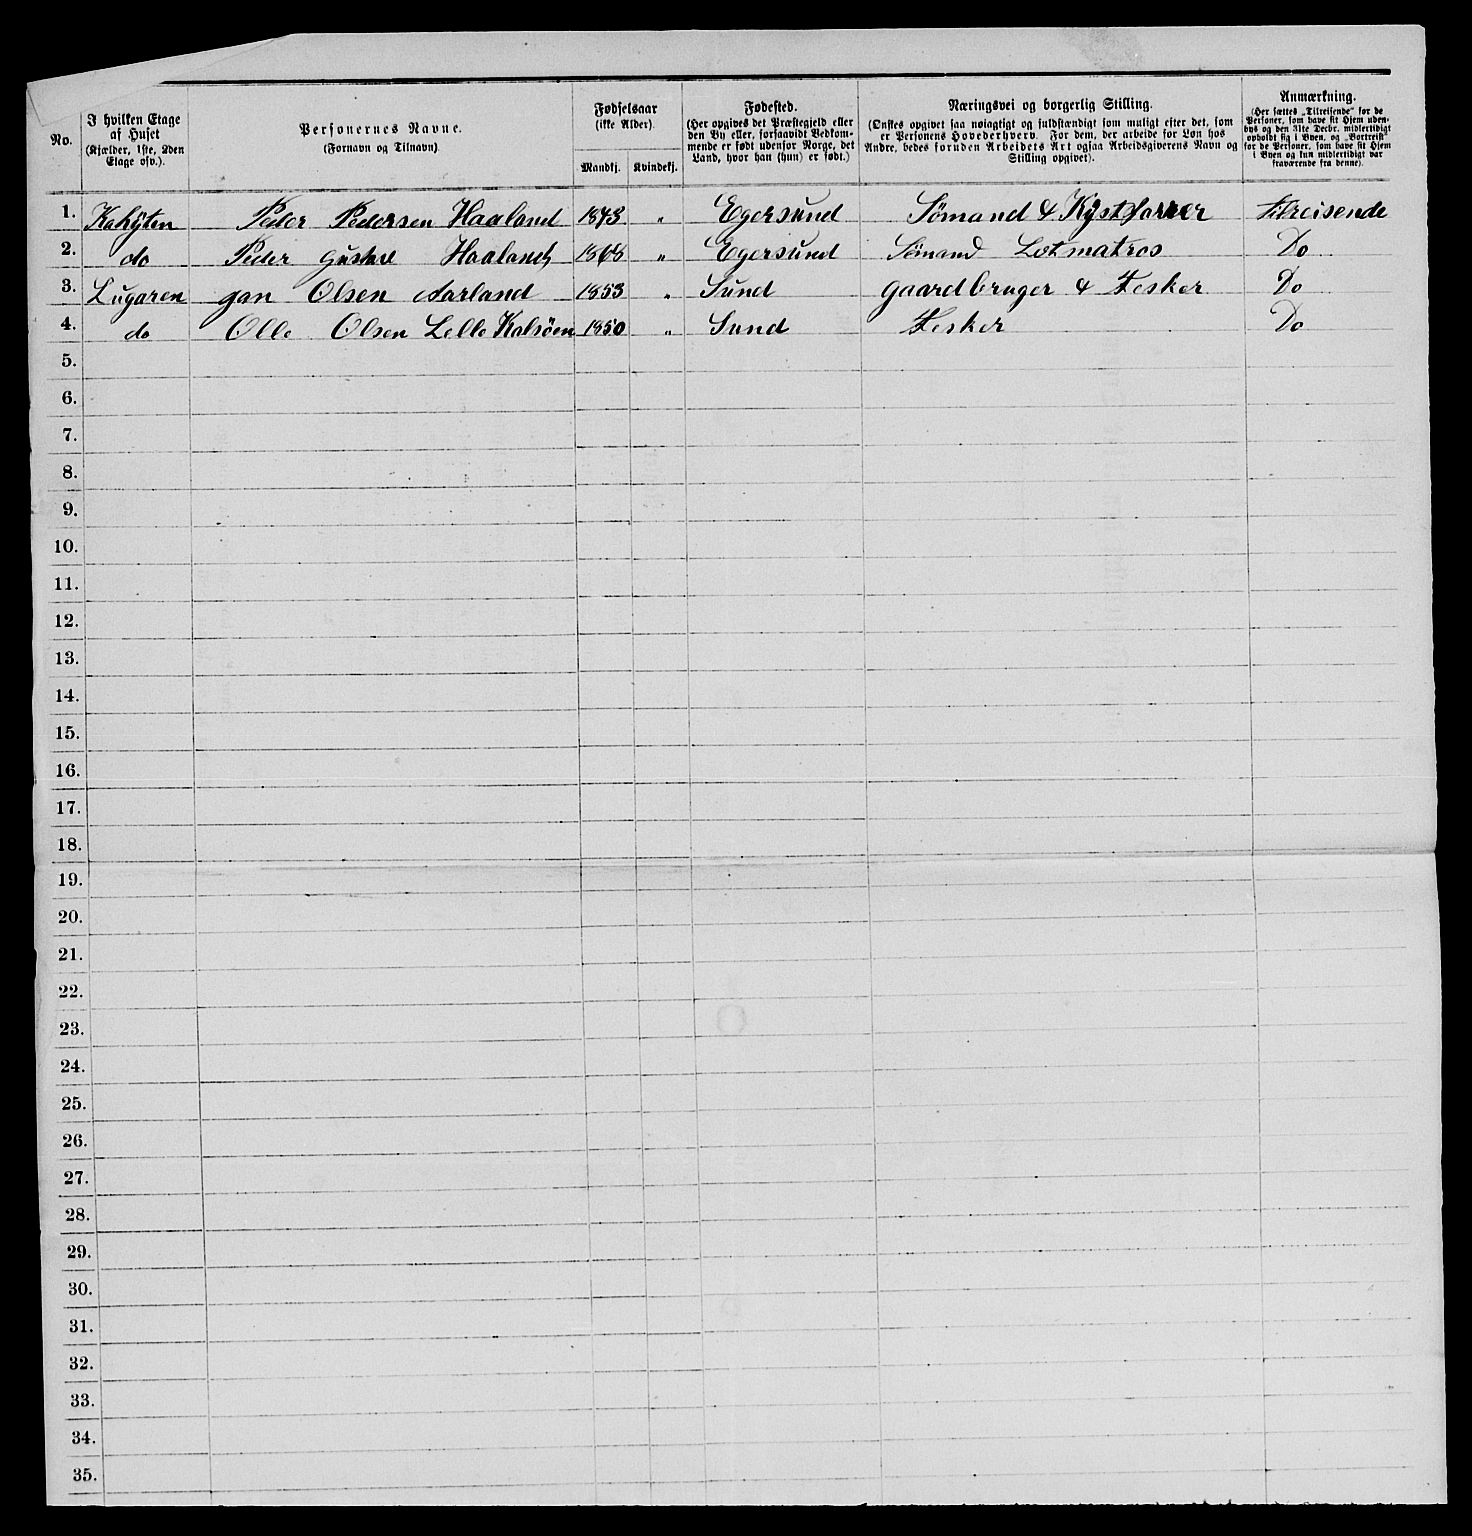 No.
I hvilken Etage
af Huset
(Kjælder, 1ste, 2den
Etage osv.).
Personernes Navne.
(Fornavn og Tilnavn)
Fødselsaar
(ikke Alder).
Mandkj.
Kvindekj.
Fødested.
(Her opgives det Præstegjeld eller
den By eller, forsaavidt Vedkom-
mende er født udenfor Norge, det
Land, hvor han (hun) er født.)
Næringsvei og borgerlig Stilling.
(Ønskes opgivet saa nøiagtigt og fuldstændigt som muligt efter det, som
er Personens Hovederhverv. For dem, der arbeide for Løn hos
Andre, bedes foruden Arbeidets Art ogsaa Arbeidsgiverens Navn og
Stilling opgivet).
Anmærkning.
(Her sættes „Tilreisende" for de
Personer, som have sit Hjem uden-
bys og den 31te Decbr. midlertidigt
opholdt sig i Byen, og „Bortreist"
for de Personer, som have sit Hjem
i Byen og kun midlertidigt var
fraværende fra denne).
1. Kahyten Peder Pedersen Haaland 1873 " Egersund Sömand & Kystfarrer tilreisende
2. do Peder Haaland 1868 " Egersund Sömand Letmatros Do
3. Lugaren gan Olsen Aarland 1853 " Sund gaardbruger & Fesker Do
4. do Olle Olsen Lelle Kalsöen 1850 " Sund Fesker Do
5.
6.
7.
8.
9.
10.
11.
12.
13.
14.
15.
16.
17.
18.
19.
20.
21.
22.
23.
24.
25.
26.
27.
28.
29.
30.
31.
32.
33.
34.
35.